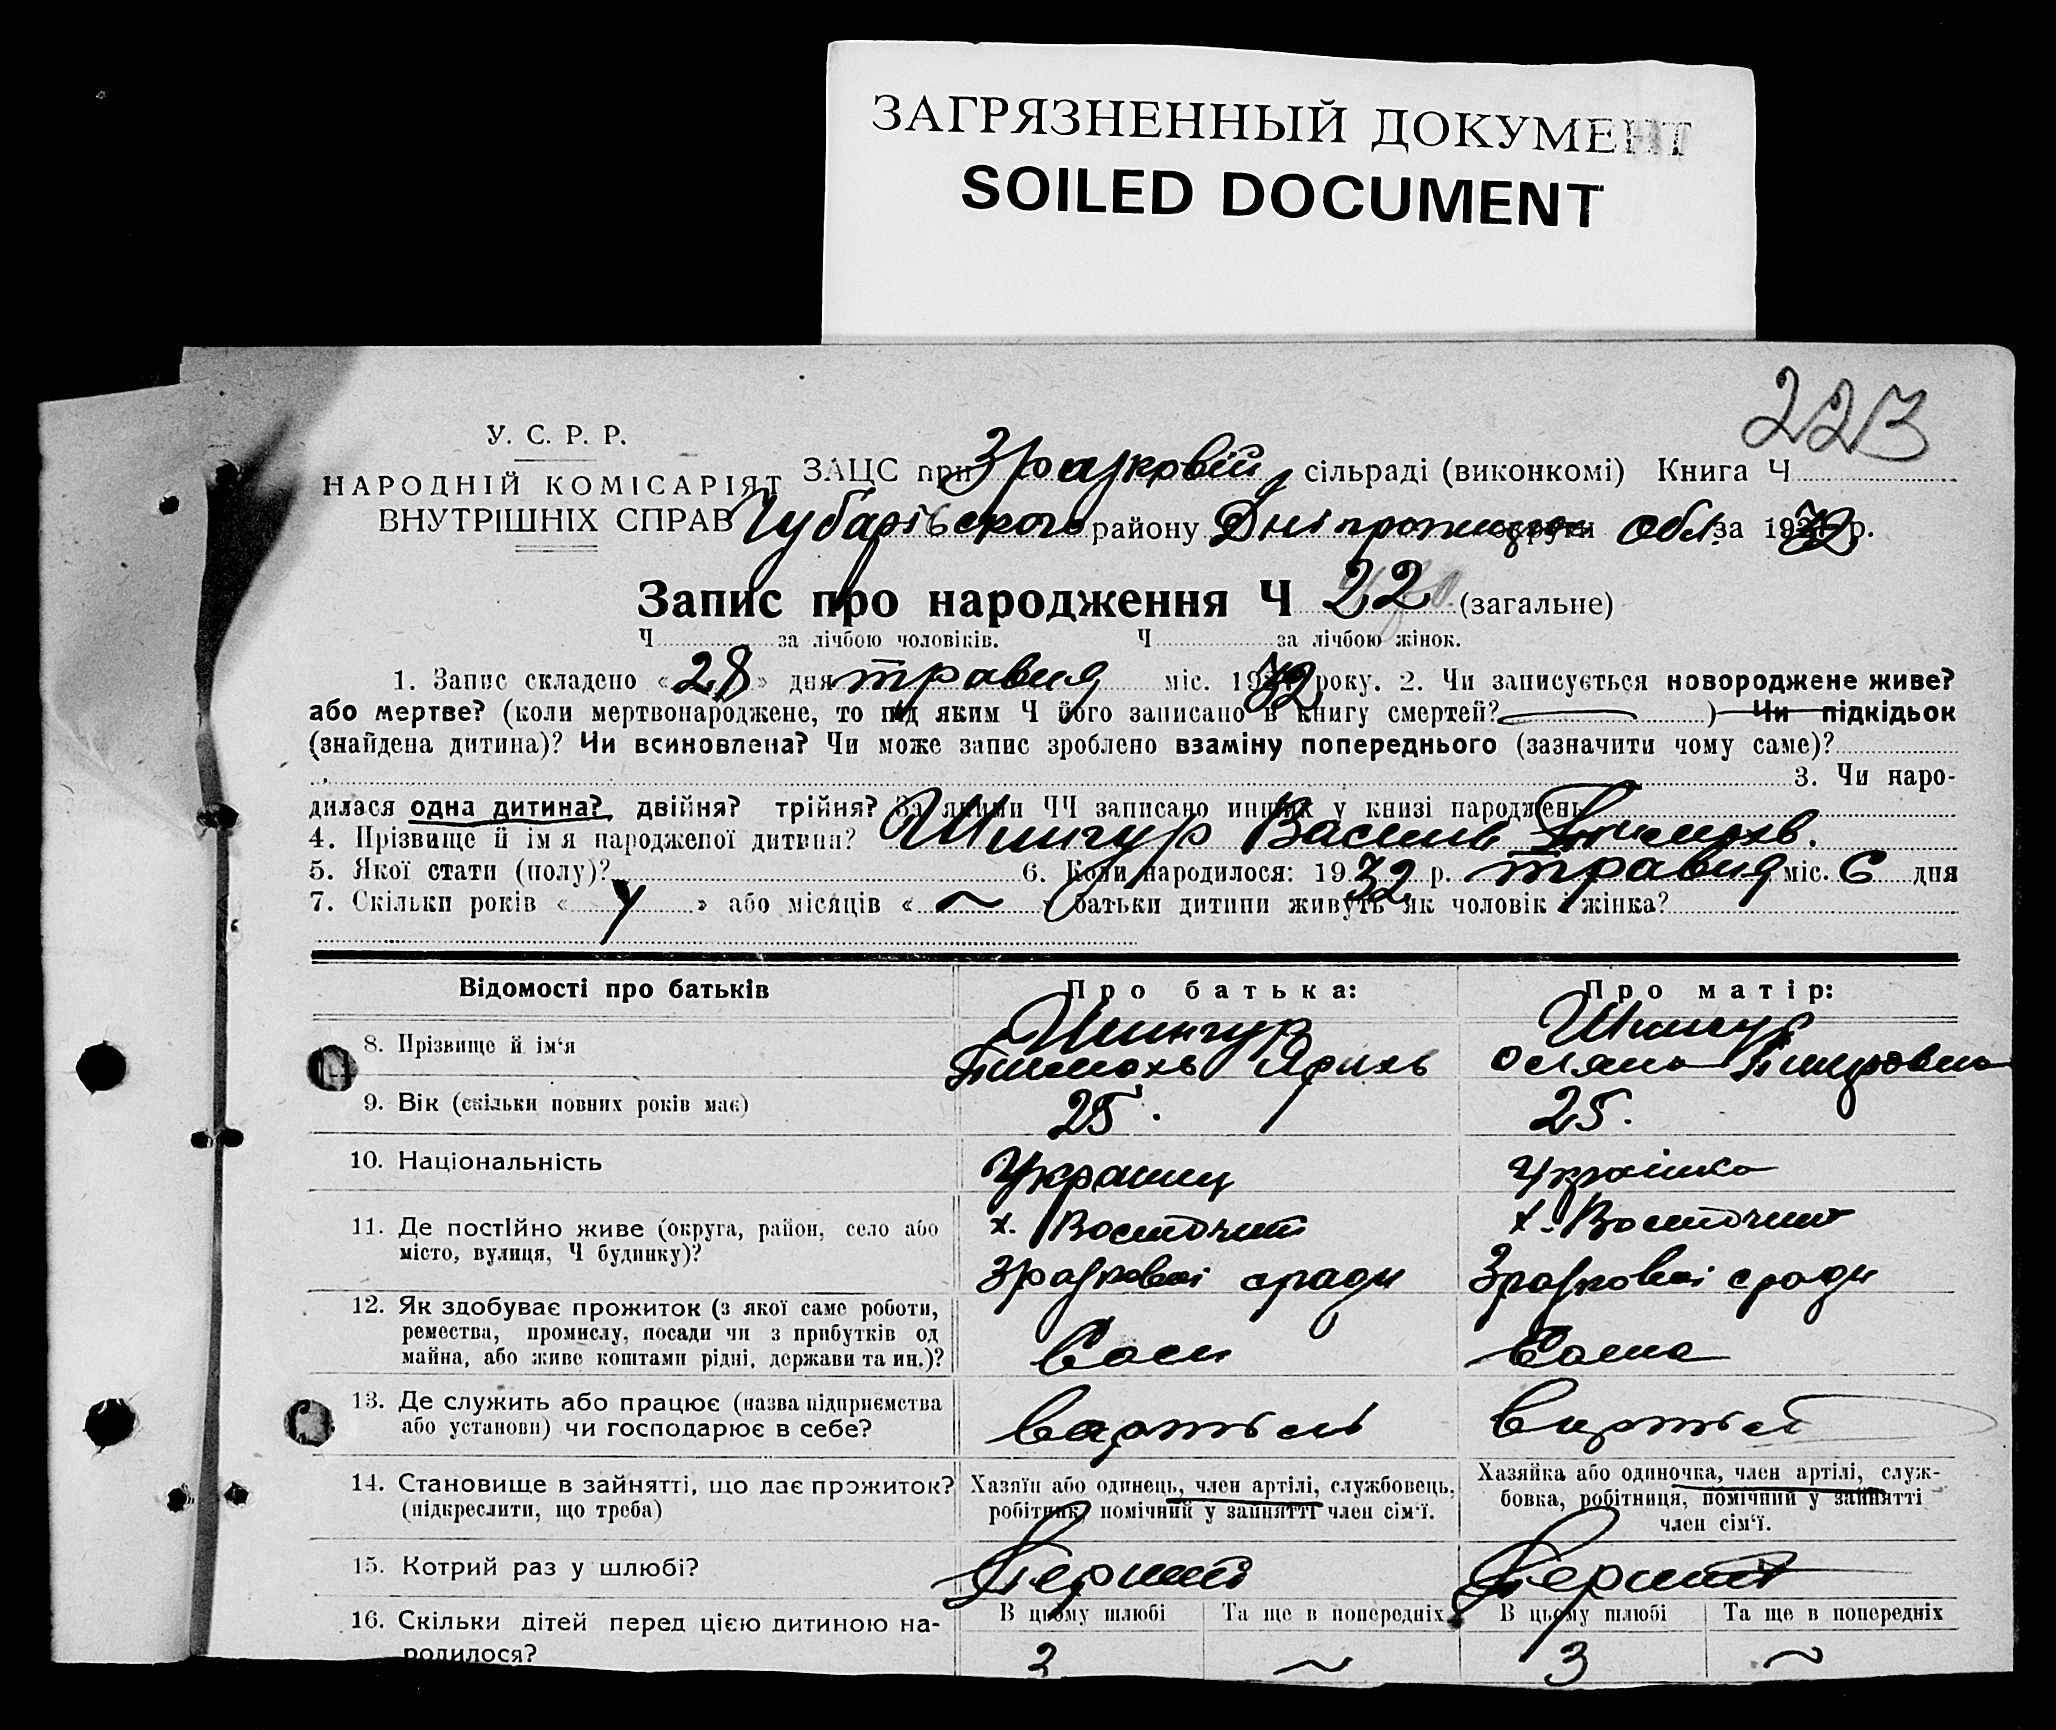 ЗАГРЯЗНЕННЫЙ ДОКУМЕНТ
SOILED DOCUMENT
223
У. С. Р. Р.
НАРОДНІЙ КОМІСАРІЯТ
ВНУТРІШНІХ СПРАВ
ЗАЦС при Зразковій сільраді (виконкомі) Книга Ч
Чубарівського району Дніпропетр округи обл. за 1932 р.
Запис про народження Ч 22 (загальне)
Ч за лічбою чоловіків. Ч за лічбою жінок.
1. Запис складено «28» дня травня міс. 1932 року. 2. Чи записується новороджене живе?
або мертве? (коли мертвонароджене, то під яким Ч його записано в книгу смертей? ) Чи підкідьок
(знайдена дитина)? Чи всиновлена? Чи може запис зроблено взаміну попереднього (зазначити чому саме)?
3. Чи наро-
дилася одна дитина? двійня? трійня? За якими ЧЧ записано инших у книзі народжень
4. Прізвище й ім'я народженої дитини? Шингур Василь Тимохв.
5. Якої стати (полу)? 6. Коли народилося: 1932 р. травня міс. 6 дня
7. Скільки років « 4 » або місяців « ~ » батьки дитини живуть як чоловік і жінка?
Відомості про батьків Про батька: Про матір:
8. Прізвище й ім'я Шингур Шингур
Тимохь
9. Вік (скільки повних років має) 25. 25.
10. Національність Українц Українка
11. Де постійно живе (округа, район, село або х. Восточний х. Восточний
місто, вулиця, Ч будинку)? Зразкової сради Зразкової сради
12. Як здобуває прожиток (з якої саме роботи,
ремества, промислу, посади чи з прибутків од
майна, або живе коштами рідні, держави та ин.)?
13. Де служить або працює (назва підприємства вартьель вартьел
або установи) чи господарює в себе?
14. Становище в зайнятті, що дає прожиток? Хазяїн або одинець, член артілі, службовець, Хазяйка або одиночка, член артілі, служ-
(підкреслити, що треба) робітник, помічний у зайнятті член сім'ї. бовка, робітниця, помічний у зайнятті
член сім'ї.
15. Котрий раз у шлюбі? Перший Перший
16. Скільки дітей перед цією дитиною на- В цьому шлюбі Та ще в попередніх В цьому шлюбі Та ще в попередніх
родилося? 3 ~ 3 ~